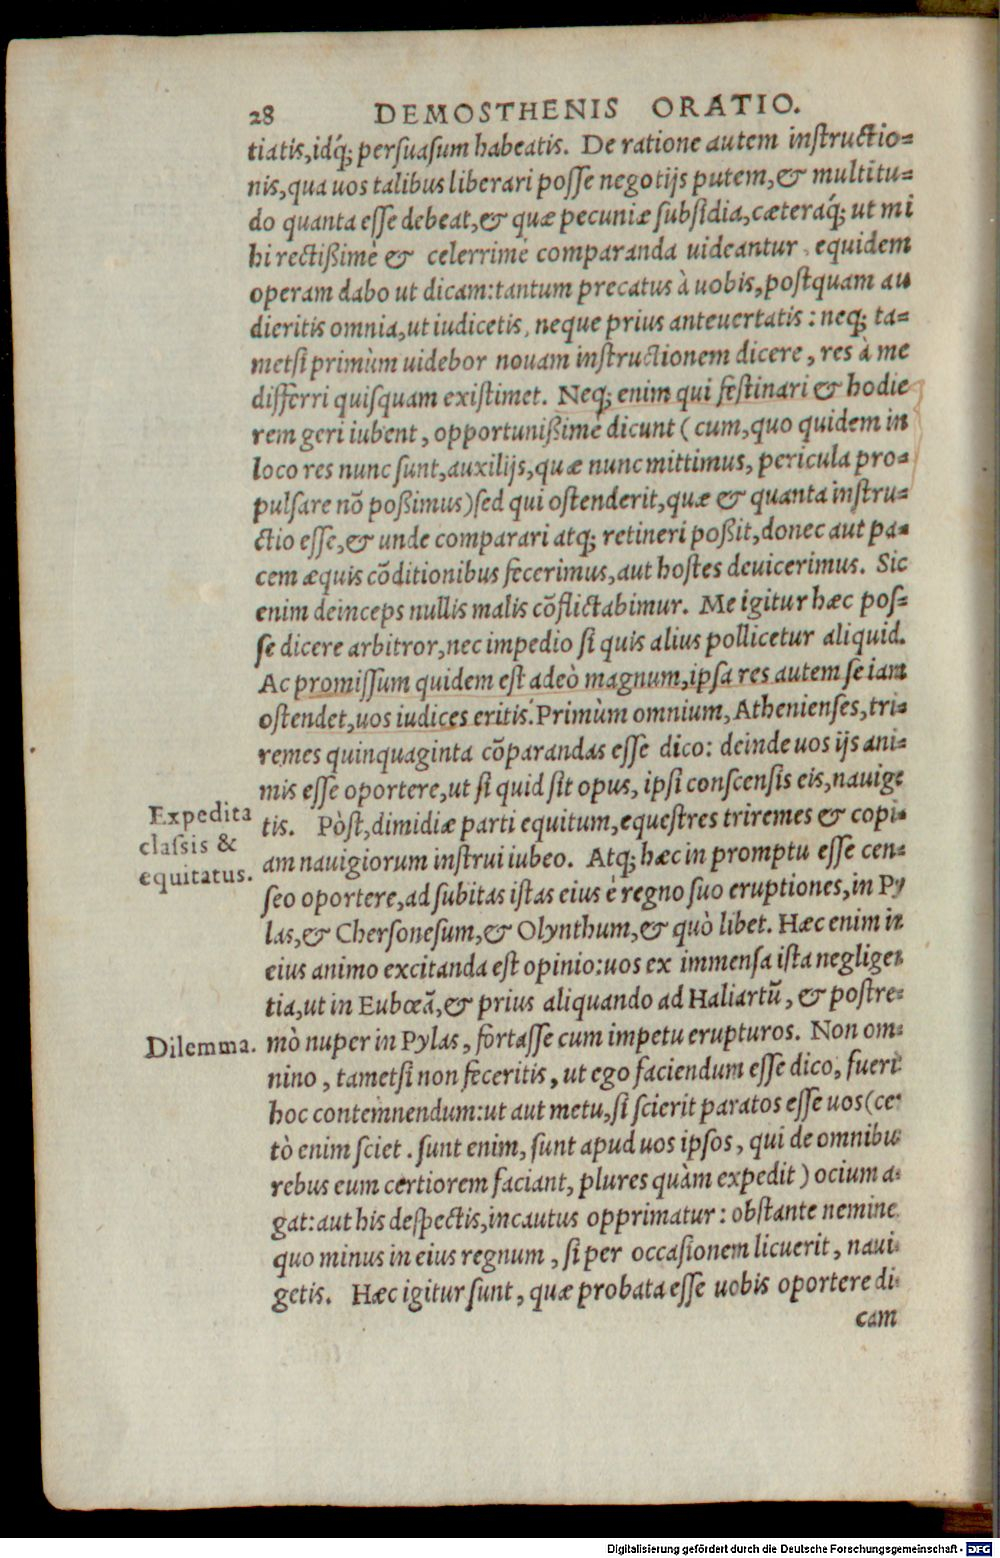 28 DEMOSTHENIS ORATIO.
tiatis, idq́; persuasum habeatis. De ratione autem instructio=
nis, qua uos talibus liberari posse negotijs putem, & multitu=
do quanta esse debeat, & quæ pecuniæ subsidia, cæteraq́; ut mi
hi rectißimè & celerrimè comparanda uideantur, equidem
operam dabo ut dicam: tantum precatus à uobis, postquam au
dieritis omnia, ut iudicetis, neque prius anteuertatis: neq; ta=
metsi primùm uidebor nouam instructionem dicere, res à me
differri quisquam existimet. Neq; enim qui festinari & hodie
rem geri iubent, opportunißimè dicunt (cum, quo quidem in
loco res nunc sunt, auxilijs, quæ nunc mittimus, pericula pro=
pulsare nō poßimus) sed qui ostenderit, quæ & quanta instru=
ctio esse, & unde comparari atq; retineri poßit, donec aut pa=
cem æquis cōditionibus fecerimus, aut hostes deuicerimus. Sic
enim deinceps nullis malis cōflictabimur. Me igitur hæc pos=
se dicere arbitror, nec impedio si quis alius pollicetur aliquid.
Ac promissum quidem est adeò magnum, ipsa res autem se iam
ostendet, uos iudices eritis. Primùm omnium, Athenienses, tri=
remes quinquaginta cōparandas esse dico: deinde uos ijs ani=
mis esse oportere, ut si quid sit opus, ipsi conscensis eis, nauige
tis. Pòst, dimidiæ parti equitum, equestres triremes & copi=
am nauigiorum instrui iubeo. Atq; hæc in promptu esse cen=
seo oportere, ad subitas istas eius è regno suo eruptiones, in Py
las, & Chersonesum, & Olynthum, & quò libet. Hæc enim in
eius animo excitanda est opinio: uos ex immensa ista negligen
tia, ut in Eubœā, & prius aliquando ad Haliartū, & postre=
mò nuper in Pylas, fortasse cum impetu erupturos. Non om=
nino, tametsi non feceritis, ut ego faciendum esse dico, fueri
hoc contemnendum: ut aut metu, si scierit paratos esse uos (cer
tò enim sciet. sunt enim, sunt apud uos ipsos, qui de omnibus
rebus eum certiorem faciant, plures quàm expedit) ocium a=
gat: aut his despectis, incautus opprimatur: obstante nemine
quo minus in eius regnum, si per occasionem licuerit, naui=
getis. Hæc igitur sunt, quæ probata esse uobis oportere di=
cam
Expedita
classis &
equitatus.
Dilemma.
Digitalisierung gefördert durch die Deutsche Forschungsgemeinschaft - DFG